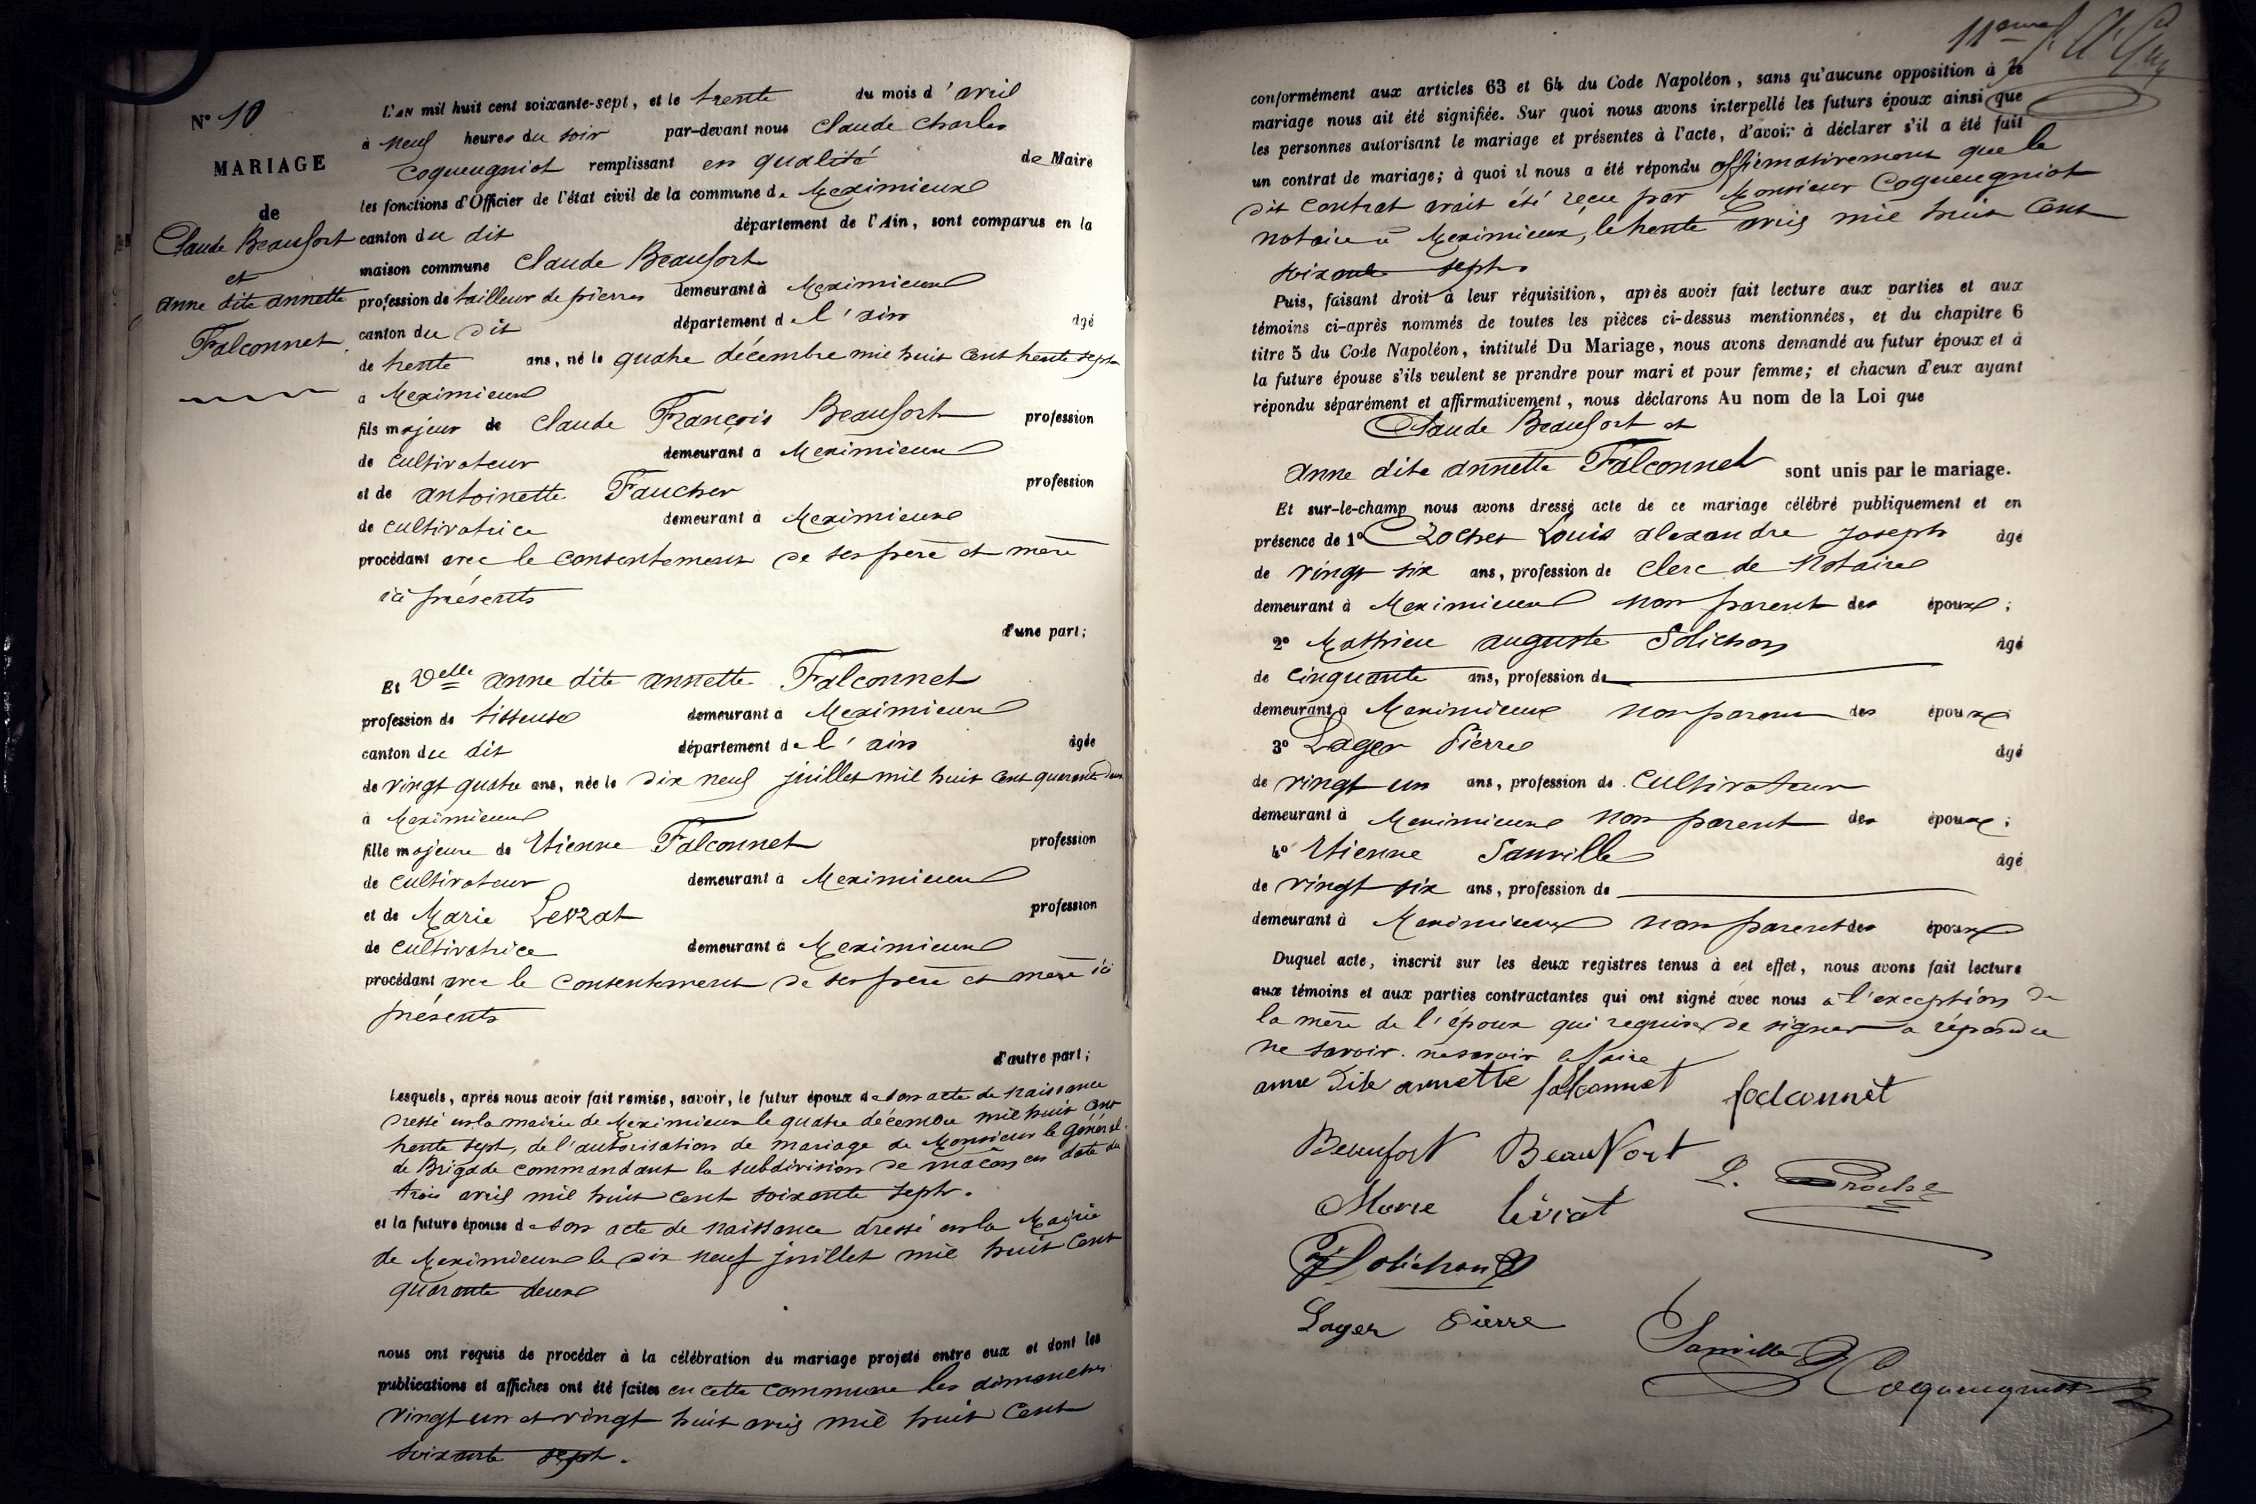 N° 10
MARIAGE
de
Claude Beaufort
et
anne dite annette
Falconnet
L'AN mil huit cent soixante-sept, et le trente du mois d'avril
à neuf heures du soir par-devant nous Claude Charles
Coqueugniot remplissant en qualité de Maire
les fonctions d'Officier de l'état civil de la commune de Meximieux
canton du dit département de l'Ain, sont comparus en la
maison commune Claude Beaufort
profession de tailleur de pierres demeurant à Meximieux
canton du dit département de l'ain âgé
de trente ans, né le quatre décembre mil huit cent trente sept
à Meximieux
fils majeur de Claude François Beaufort profession
de cultivateur demeurant à Meximieux
et de antoinette Faucher profession
de cultivatrice demeurant à Meximieux
procédant avec le consentement de ses père et mère
ici présents
d'une part;
Et Delle anne dite annette Falconnet
profession de tisseuse demeurant à Meximieux
canton du dit département de l'ain âgée
de vingt quatre ans, née le dix neuf juillet mil huit cent quarante deux
à Meximieux
fille majeure de Etienne Falconnet profession
de cultivateur demeurant à Meximieux
et de Marie Levrat profession
de cultivatrice demeurant à Meximieux
procédant avec le consentement de ses père et mère ici
présents
d'autre part;
Lesquels, après nous avoir fait remise, savoir, le futur époux de son acte de naissance
dressé en la mairie de Meximieux le quatre décembre mil huit cent
trente sept, de l'autorisation de mariage de Monsieur le général
de Brigade commandant la subdivision de macon en date du
trois avril mil huit cent soixante sept.
et la future épouse de son acte de naissance dressé en la Mairie
de Meximieux le dix neuf juillet mil huit cent
quarante deux
nous ont requis de procéder à la célébration du mariage projeté entre eux et dont les
publications et affiches ont été faites en cette commune les dimanches
vingt un et vingt huit avril mil huit cent
soixante sept.
conformément aux articles 63 et 64 du Code Napoléon, sans qu'aucune opposition à ce
mariage nous ait été signifiée. Sur quoi nous avons interpellé les futurs époux ainsi que
les personnes autorisant le mariage et présentes à l'acte, d'avoir à déclarer s'il a été fait
un contrat de mariage; à quoi il nous a été répondu affirmativement que le
dit contrat avait été reçu par Monsieur Coqueugniot
notaire à Meximieux, le trente avril mil huit cent
soixante sept.
Puis, faisant droit à leur réquisition, après avoir fait lecture aux parties et aux
témoins ci-après nommés de toutes les pièces ci-dessus mentionnées, et du chapitre 6
titre 5 du Code Napoléon, intitulé Du Mariage, nous avons demandé au futur époux et à
la future épouse s'ils veulent se prendre pour mari et pour femme; et chacun d'eux ayant
répondu séparément et affirmativement, nous déclarons Au nom de la Loi que
Claude Beaufort et
anne dite annette Falconnet sont unis par le mariage.
Et sur-le-champ nous avons dressé acte de ce mariage célébré publiquement et en
présence de 1° Louis alexandre Joseph âgé
de vingt six ans, profession de clerc de Notaire
demeurant à Meximieux non parent des époux;
2° Mathieu auguste Solichon âgé
de cinquante ans, profession de
demeurant à Meximieux non parent des époux
3° Lager Pierre âgé
de vingt un ans, profession de cultivateur
demeurant à Meximieux non parent des époux;
4° Etienne Sanville âgé
de vingt six ans, profession de
demeurant à Meximieux non parent des époux
Duquel acte, inscrit sur les deux registres tenus à cet effet, nous avons fait lecture
aux témoins et aux parties contractantes qui ont signé avec nous à l'exception de
la mère de l'époux qui requise de signer a répondu
ne savoir. ne savoir le faire
anne dite annette falconnet falconnet
Beaufort Beaufort
Marie levrat
Solichon
Lager Pierre
Sanville
Coqueugniot